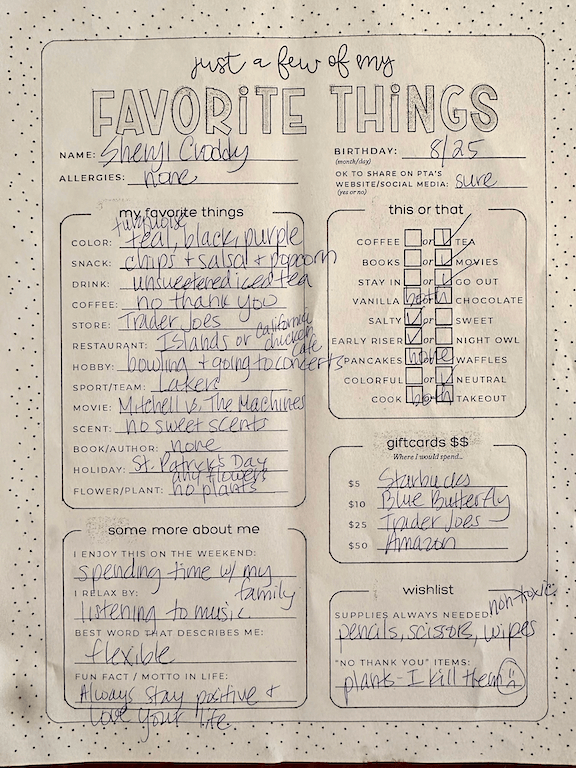 just a few of my
FAVORITE THINGS
NAME: Sheryl Croddy
ALLERGIES: none
BIRTHDAY: 8/25
(month/day)
OK TO SHARE ON PTA'S
WEBSITE/SOCIAL MEDIA: sure
(yes or no)
my favorite things
turquoise
COLOR: teal, black, purple
SNACK: chips + salsa + popcorn
DRINK: unsweetened iced tea
COFFEE: no thank you
STORE: Trader Joes
RESTAURANT: Islands or California
chicken
cafe
HOBBY: bowling + going to concerts
SPORT/TEAM: Lakers
MOVIE: Mitchell vs. The Machines
SCENT: no sweet scents
BOOK/AUTHOR: none
HOLIDAY: St. Patrick's Day
any flowers
FLOWER/PLANT: no plants
this or that
COFFEE or TEA
BOOKS or MOVIES
STAY IN or GO OUT
VANILLA both CHOCOLATE
SALTY or SWEET
EARLY RISER or NIGHT OWL
PANCAKES none WAFFLES
COLORFUL or NEUTRAL
COOK both TAKEOUT
giftcards $$
Where I would spend...
$5 Starbucks
$10 Blue Butterfly
$25 Trader Joes
$50 Amazon
some more about me
I ENJOY THIS ON THE WEEKEND:
spending time w/ my
family
I RELAX BY:
listening to music
BEST WORD THAT DESCRIBES ME:
flexible
FUN FACT / MOTTO IN LIFE:
Always stay positive +
love your life
wishlist
SUPPLIES ALWAYS NEEDED:
non-toxic
pencils, scissors, wipes
"NO THANK YOU" ITEMS:
plants - I kill them